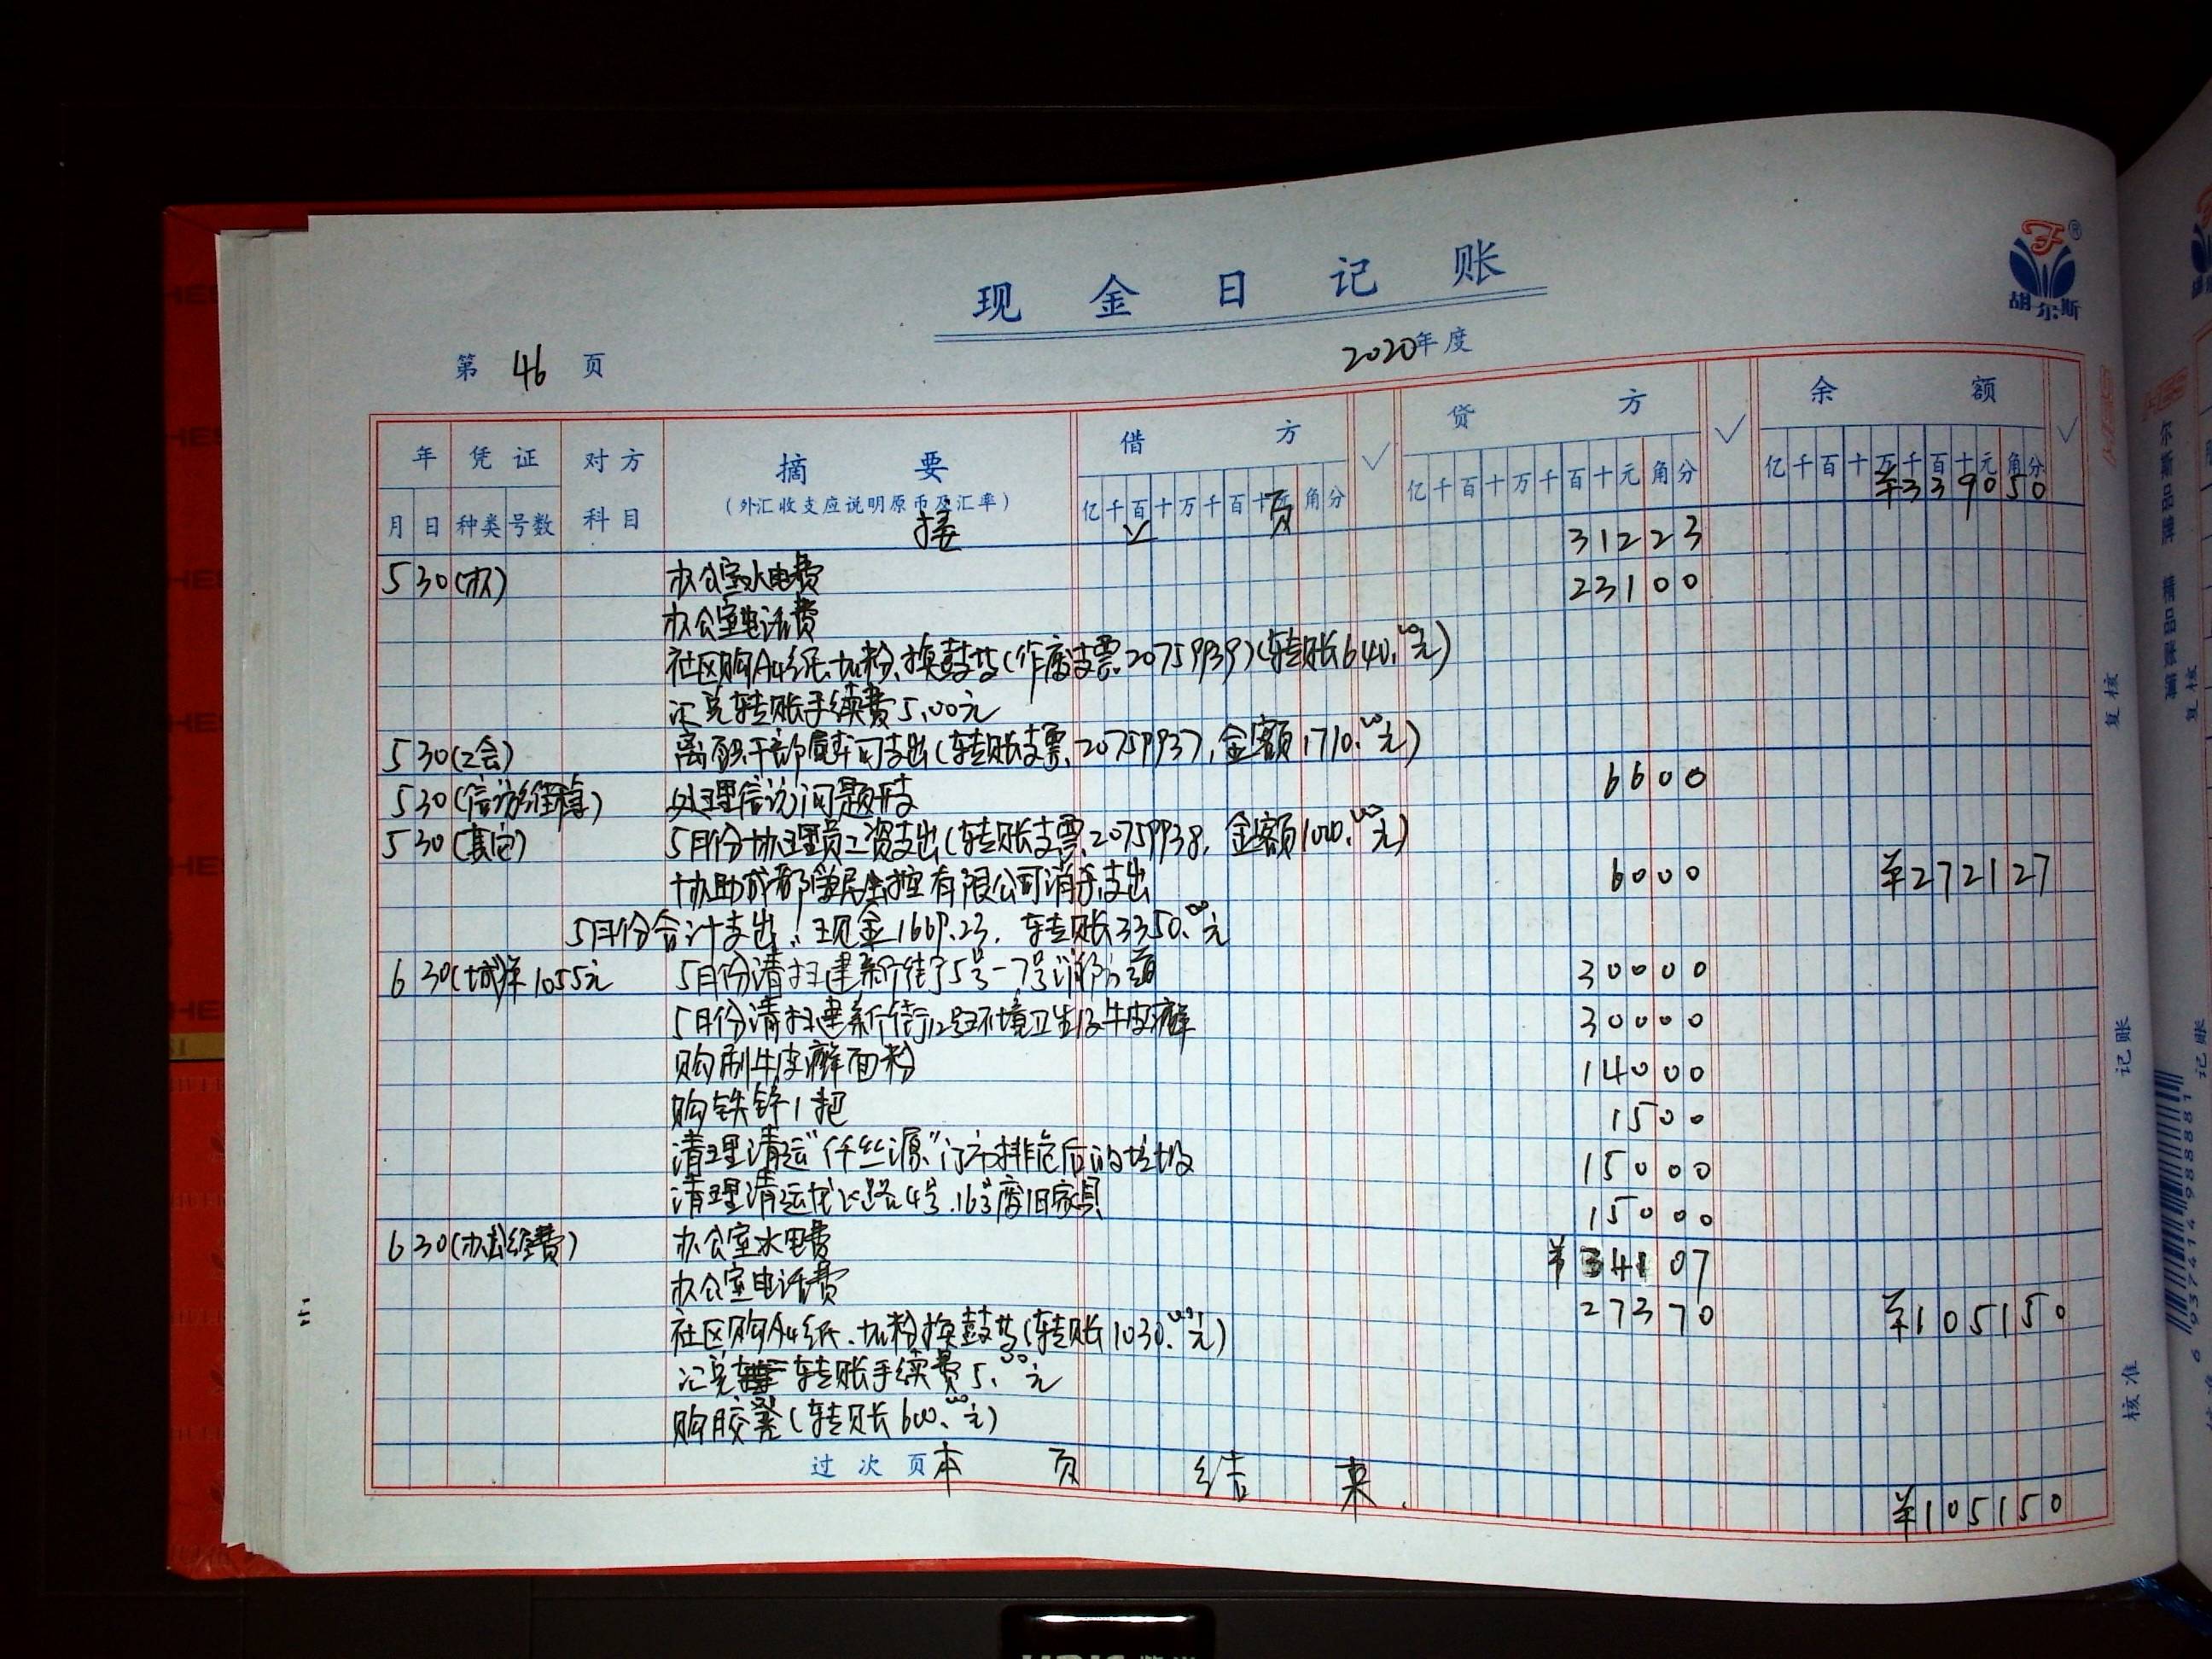 现金日记账
第 46 页
2020年度
胡尔斯
年 凭证 对方 摘要 借方 ✓ 贷方 ✓ 余额 ✓
月 日 种类 号数 科目 (外汇收支应说明原币及汇率) 亿千百十万千百十元角分 亿千百十万千百十元角分 亿千百十万千百十元角分
接 上 页 ¥339050
5 30 (办) 办公室水电费 31223
办公室电话费 23100
社区购A4纸、加粉、换鼓芯(作废支票20759939)(转账640.00元)
汇兑转账手续费5.00元
5 30 (工会) 离职干部慰问支出(转账支票20759937,金额1710.00元)
5 30 (信访维稳) 处理信访问题开支 6600
5 30 (其它) 5月份协理员工资支出(转账支票20759938,金额1000.00元)
协助成都 有限公司消杀支出 6000 ¥272127
5月份合计支出:现金1669.23,转账3350.00元
6 30 (城管1055元 5月份清扫建新街5号-7号消防通道 30000
5月份清扫建新街12号环境卫生除牛皮癣 30000
购刷牛皮癣面粉 14000
购铁锌1把 1500
清理清运"仟丝源"门市排危后的垃圾 15000
清理清运 路4号.16号废旧家具 15000
6 30 (办公经费) 办公室水电费 ¥34107
办公室电话费 27370 ¥105150
社区购A4纸、加粉换鼓芯(转账1030.00元)
汇兑转账手续费5.00元
购胶凳(转账600.00元)
过次页 本 页 结 束. ¥105150
复核
记账
核准
尔斯品牌 精品账簿